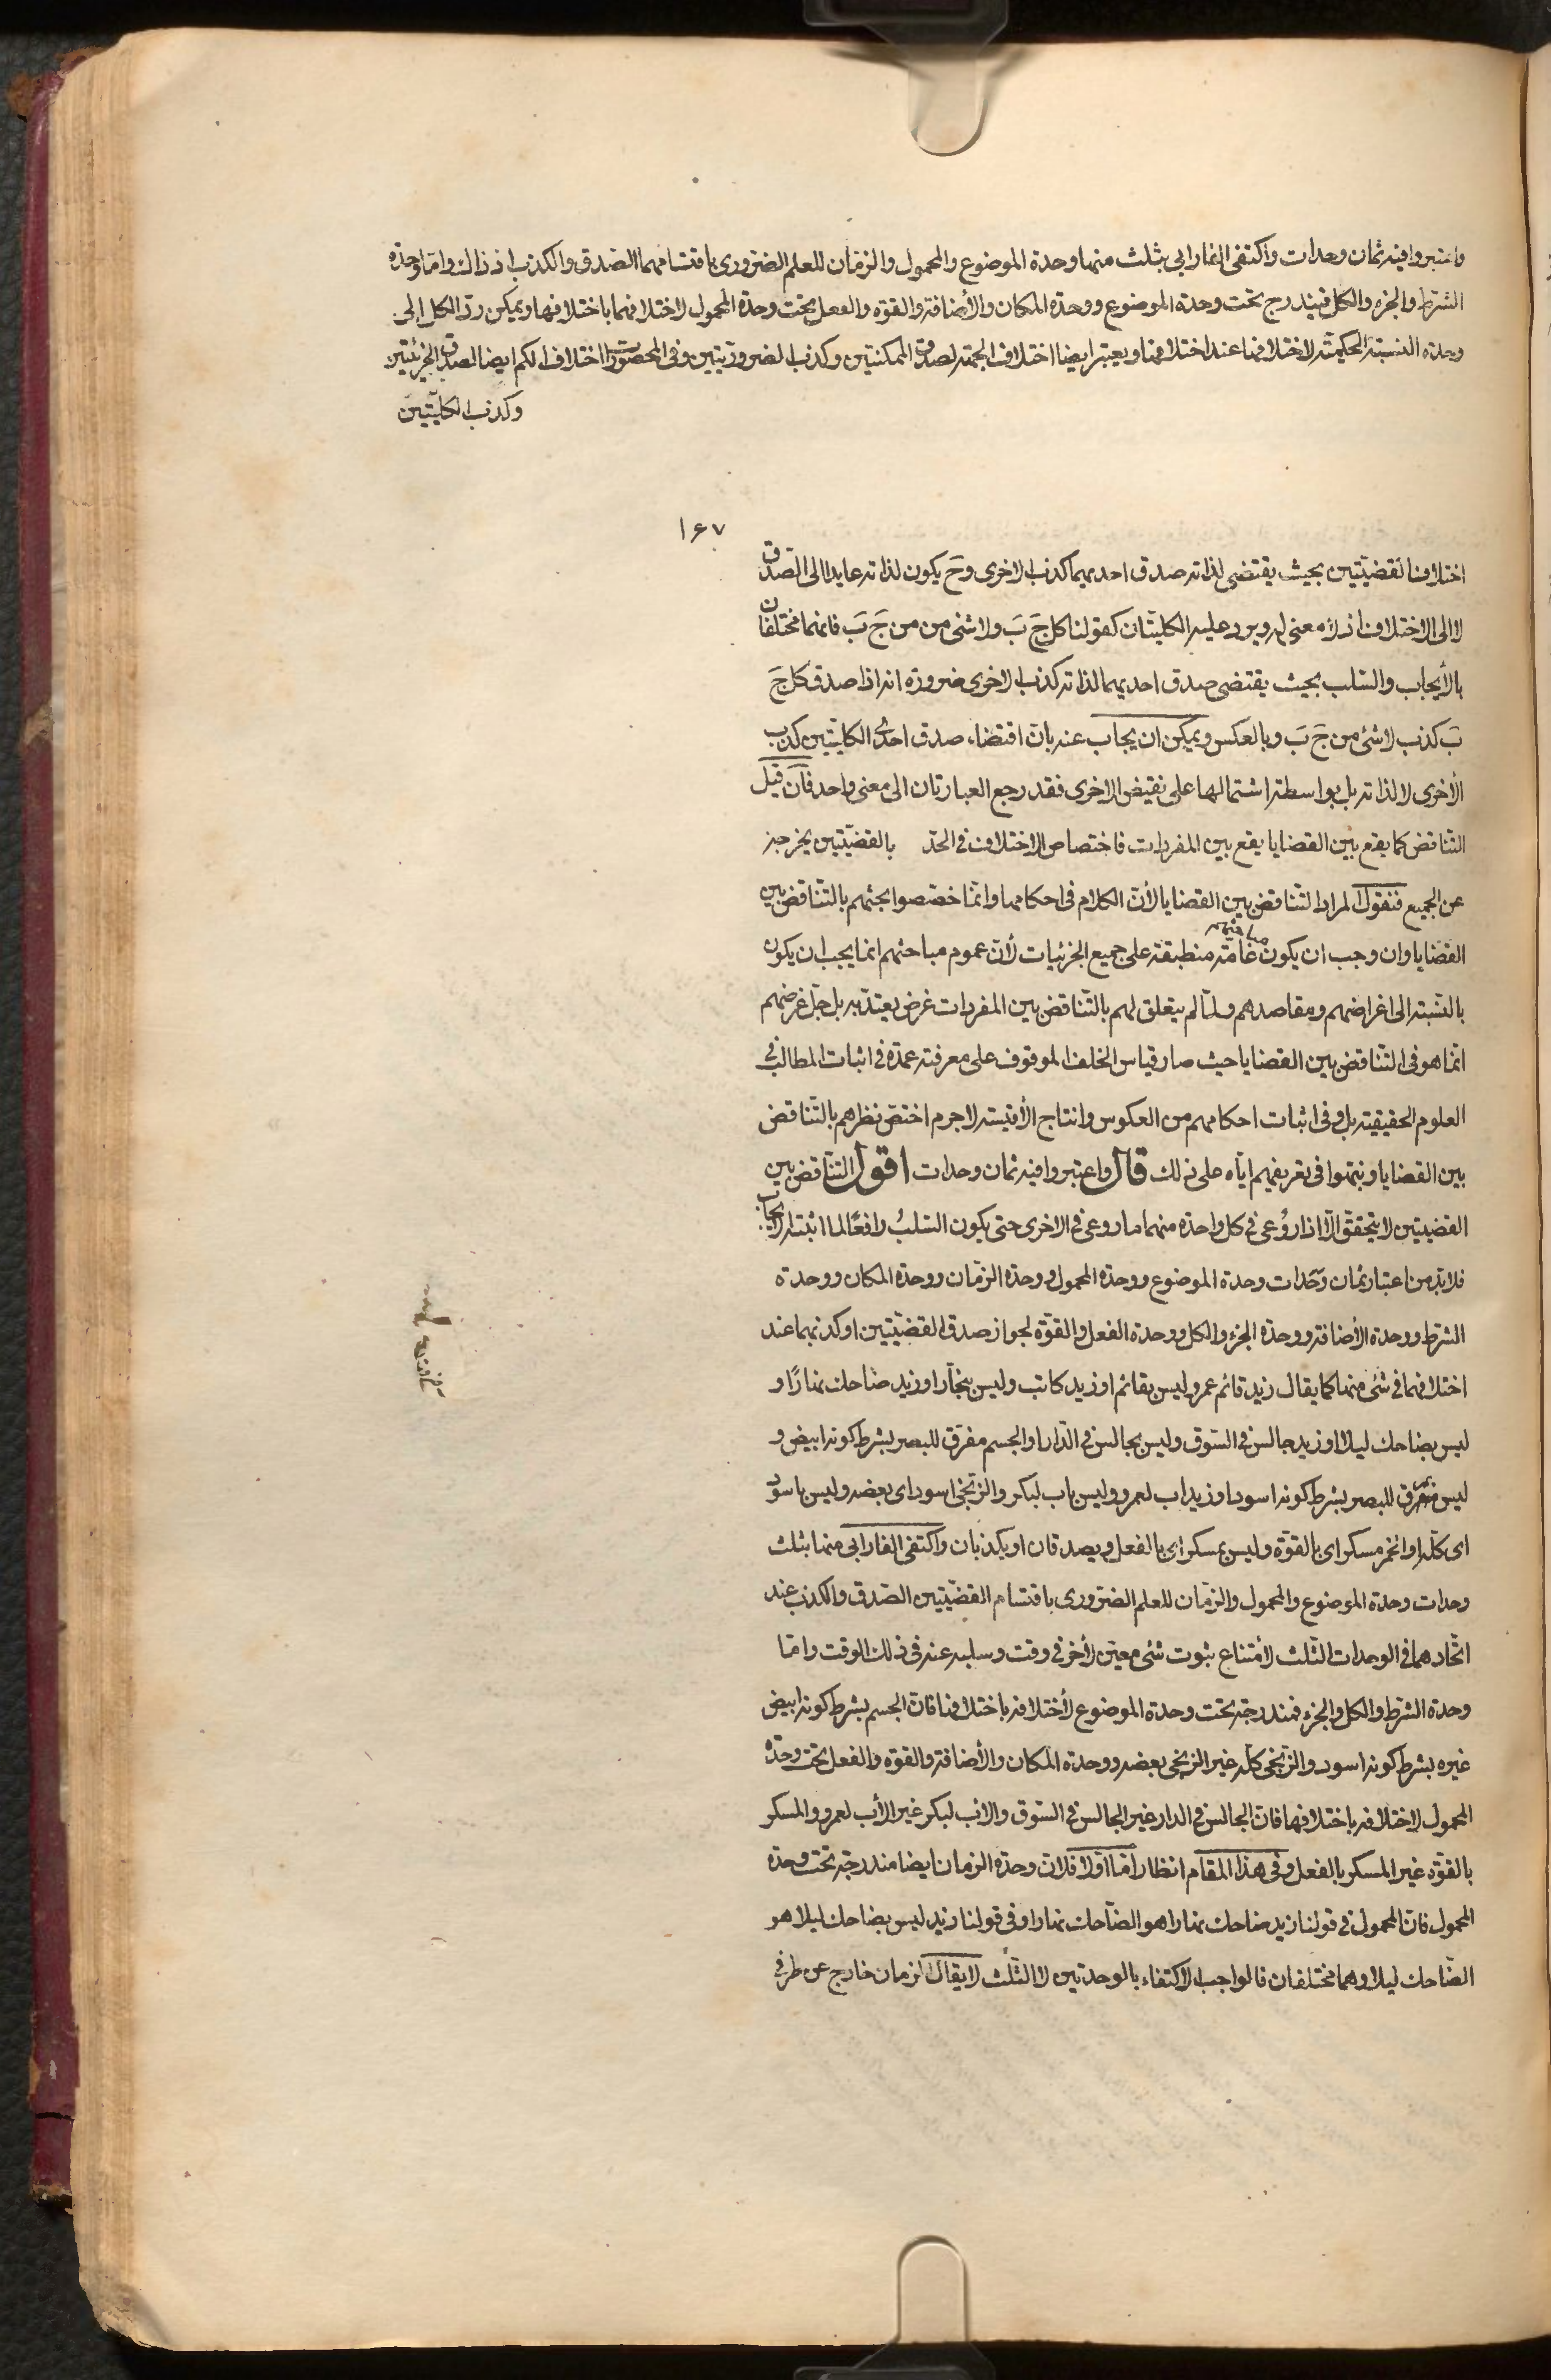 واعتبروا فيه ثمان وحدات واكتفى الفارابى بثلث منها وحدة الموضوع والمحمول والزمان للعلم الضرورى باقتسامهما الصدق والكذب اذ ذاك واما وحدة
الشرط والجزء والكل فيندرج تحت وحدة الموضوع ووحدة المكان والأضافة والقوة والفعل تحت وحدة المحمول لاختلافهما باختلافها ويمكن رد الكل إلى
وحدة النسبة الحكمية لاختلافها عند اختلافها ويعتبر ايضا اختلاف الجهة لصدق الممكنتين وكذب الضروريتين وفى المحصورات اختلاف الكم ايضا لصدق الجزئيتين
وكذب الكليتين
١٦٧
اختلاف القضيتين بحيث يقتضى لذاته صدق احديهما كذب الاخرى وح يكون لذاته عايدا الى الصدق
لا الى الاختلاف اذ لا معنى له ويرد عليه الكليتان كقولنا كل جَ بَ ولا شئ من من جَ بَ فانهما مختلفان
بالأيجاب والسلب بحيث يقتضى صدق احديهما لذاته كذب الاخرى ضرورة انه اذا صدق كل جَ
بَ كذب لا شئ من جَ بَ وبالعكس ويمكن ان يجاب عنه بان اقتضاء صدق احدى الكليتين كذب
الأخرى لا لذاته بل بواسطة اشتمالها على نقيض الاخرى فقد رجع العبارتان الى معنى واحد فان قيل
التناقض كما يقع بين القضايا يقع بين المفردات فاختصاص الاختلاف فى الحد بالقضيتين يخرجه
عن الجميع فنقول المراد التناقض بين القضايا لأن الكلام فى احكامها وانما خصصوا بحثهم بالتناقض بين
القضايا وان وجب ان يكون مباحثهم عامة منطبقة على جميع الجزئيات لأن عموم مباحثهم انما يجب ان يكون
بالنسبة الى اغراضهم ومقاصدهم ولما لم يتعلق لهم بالتناقض بين المفردات غرض يعتد به بل جل غرضهم
انما هو فى التناقض بين القضايا حيث صار قياس الخلف الموقوف على معرفته عمدة فى اثبات المطالب فى
العلوم الحقيقية بل وفى اثبات احكامهم من العكوس وانتاج الأقيسة لاجرم اختص نظرهم بالتناقض
بين القضايا ونبهوا فى تعريفهم اياه على ذلك قال واعتبروا فيه ثمان وحدات اقول التناقض بين
القضيتين لا يتحقق الا اذا روُعى فى كل واحدة منهما ما روعى فى الاخرى حتى يكون السلبُ رافعًا لما اثبته الايجاب
فلا بد من اعتبار ثمان وحَدات وحدة الموضوع ووحدة المحمول ووحدة الزمان ووحدة المكان ووحدة
الشرط ووحدة الأضافة ووحدة الجزء والكل ووحدة الفعل والقوة لجواز صدق القضيتين او كذبهما عند
اختلافهما فى شئ منها كما يقال زيد قائم عمرو ليس بقائم او زيد كاتب وليس بنجار او زيد ضاحك نهارًا و
ليس بضاحك ليلا او زيد جالس فى السوق وليس بجالس فى الدار او الجسم مفرق للبصر بشرط كونه ابيض و
ليس بمفرق للبصر بشرط كونه اسود او زيد اب لعمرو وليس باب لبكر والزنجى اسود اى بعضه وليس باسود
اى كله او الخمر مسكر اى بالقوة وليس بمسكر اى بالفعل ويصدقان او يكذبان واكتفى الفارابى منها بثلث
وحدات وحدة الموضوع والمحمول والزمان للعلم الضرورى باقتسام القضيتين الصدق والكذب عند
اتحادهما فى الوحدات الثلث لأمتناع ثبوت شئ معين لأخر فى وقت وسلبه عنه فى ذلك الوقت واما
وحدة الشرط والكل والجزء فمندرجة تحت وحدة الموضوع لأختلافه باختلافها فان الجسم بشرط كونه ابيض
غيره بشرط كونه اسود والزنجى كله غير الزنجى بعضه ووحدة المكان والأضافة والقوة والفعل تحت وحدة
المحمول لاختلافه باختلافها فان الجالس فى الدار غير الجالس فى السوق والاب لبكر غير الأب لعمرو والمسكر
بالقوة غير المسكر بالفعل وفى هذا المقام انظار اما اولا فلان وحدة الزمان ايضا مندرجة تحت وحدة
المحمول فان المحمول فى قولنا زيد ضاحك نهارا هو الضاحك نهارا وفى قولنا زيد ليس بضاحك ليلا هو
الضاحك ليلا وهما مختلفان فالواجب الاكتفاء بالوحدتين لا الثلث لا يقال الزمان خارج عن طرفى